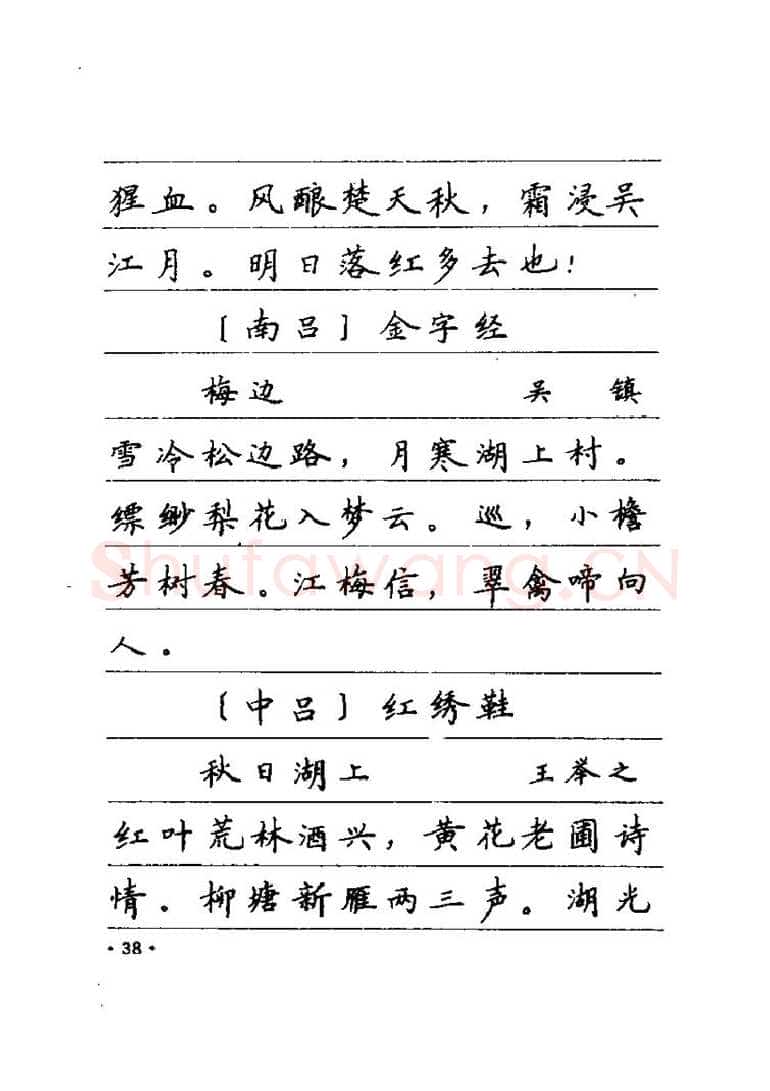 猩血。风酿楚天秋，霜浸吴
江月。明日落红多去也！
〔南吕〕金字经
梅边 吴 镇
雪冷松边路，月寒湖上村。
缥缈梨花入梦云。巡，小檐
芳树春。江梅信，翠禽啼向
人。
〔中吕〕红绣鞋
秋日湖上 王举之
红叶荒林酒兴，黄花老圃诗
情。柳塘新雁两三声。湖光
·38·
Shufawang.CN